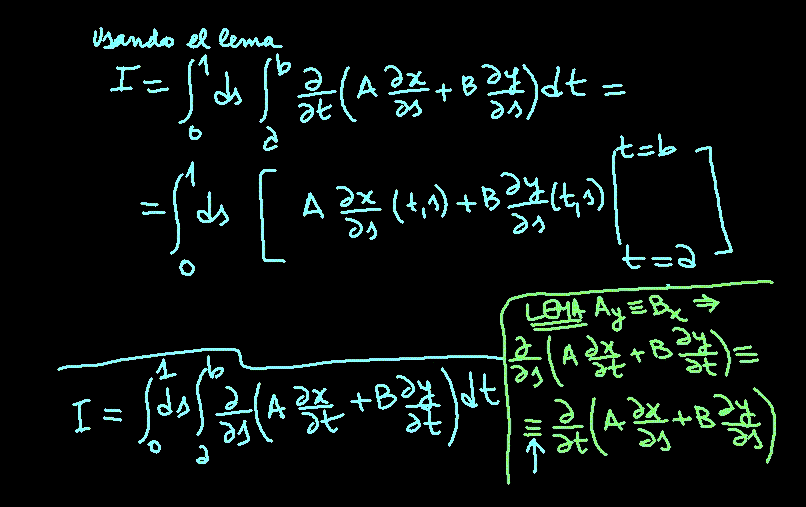 Usando el lema
I = ∫₀¹ ds ∫ₐᵇ ∂/∂t (A ∂x/∂s + B ∂y/∂s) dt =
= ∫₀¹ ds [ A ∂x/∂s (t,s) + B ∂y/∂s (t,s) |_{t=a}^{t=b} ]
I = ∫₀¹ ds ∫ₐᵇ ∂/∂s (A ∂x/∂t + B ∂y/∂t) dt
LEMA A_y ≡ B_x ⇒
∂/∂s (A ∂x/∂t + B ∂y/∂t) ≡
≡ ∂/∂t (A ∂x/∂s + B ∂y/∂s)
↑